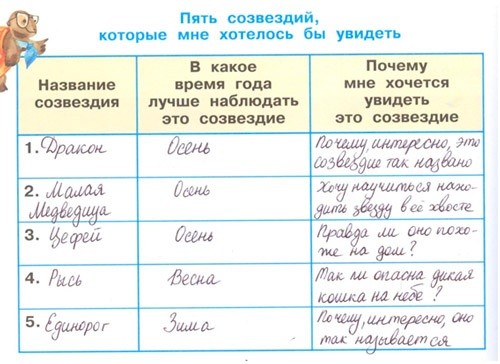 Пять созвездий,
которые мне хотелось бы увидеть
Название
созвездия
В какое
время года
лучше наблюдать
это созвездие
Почему
мне хочется
увидеть
это созвездие
1. Дракон
Осень
Почему, интересно, это
созвездие так названо
2. Малая
Медведица
Осень
Хочу научиться нахо-
дить звезду в её хвосте
3. Цефей
Осень
Правда ли оно похо-
же на дом?
4. Рысь
Весна
Так ли опасна дикая
кошка на небе?
5. Единорог
Зима
Почему, интересно, оно
так называется